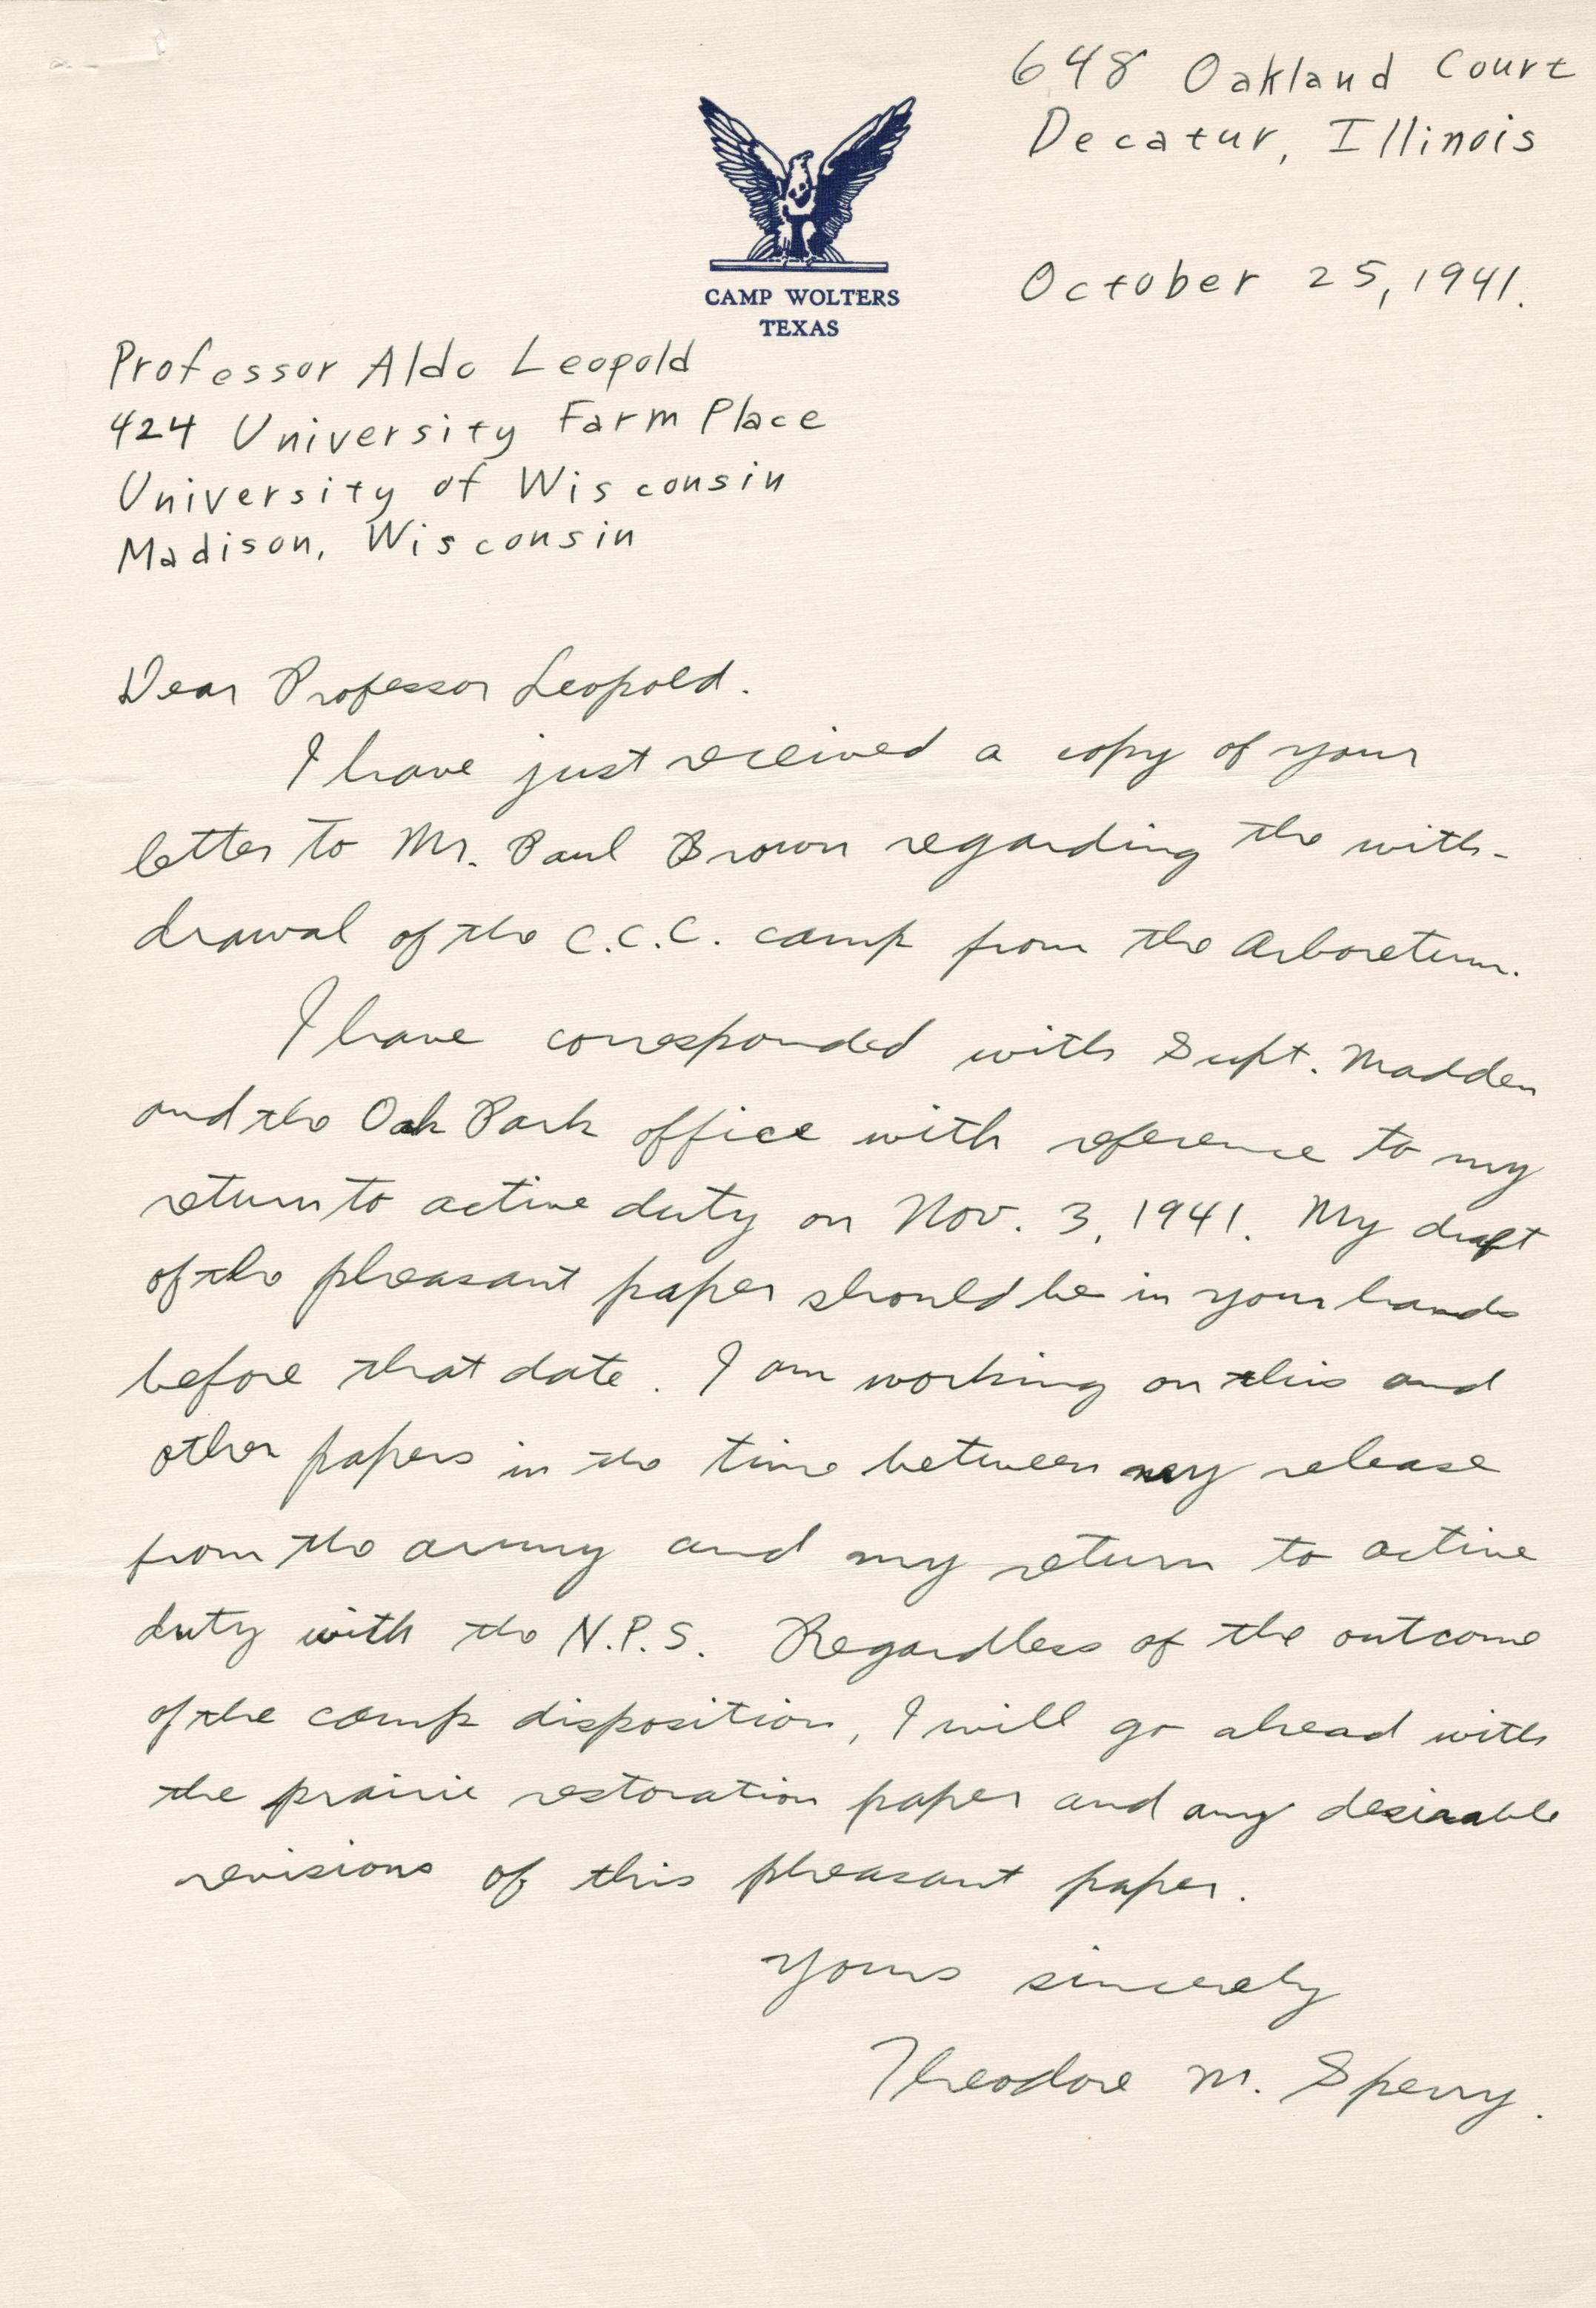 648 Oakland Court
Decatur, Illinois
CAMP WOLTERS
TEXAS
October 25, 1941.
Professor Aldo Leopold
424 University Farm Place
University of Wisconsin
Madison, Wisconsin
Dear Professor Leopold.
I have just received a copy of your
letter to Mr. Paul Brown regarding the with-
drawal of the C.C.C. camp from the Arboretum.
I have corresponded with Supt. Madden
and the Oak Park office with reference to my
return to active duty on Nov. 3, 1941. My draft
of the pheasant paper should be in your hands
before that date. I am working on this and
other papers in the time between my release
from the army and my return to active
duty with the N.P.S. Regardless of the outcome
of the camp disposition, I will go ahead with
the prairie restoration paper and any desirable
revisions of this pheasant paper.
Yours sincerely
Theodore M. Sperry.